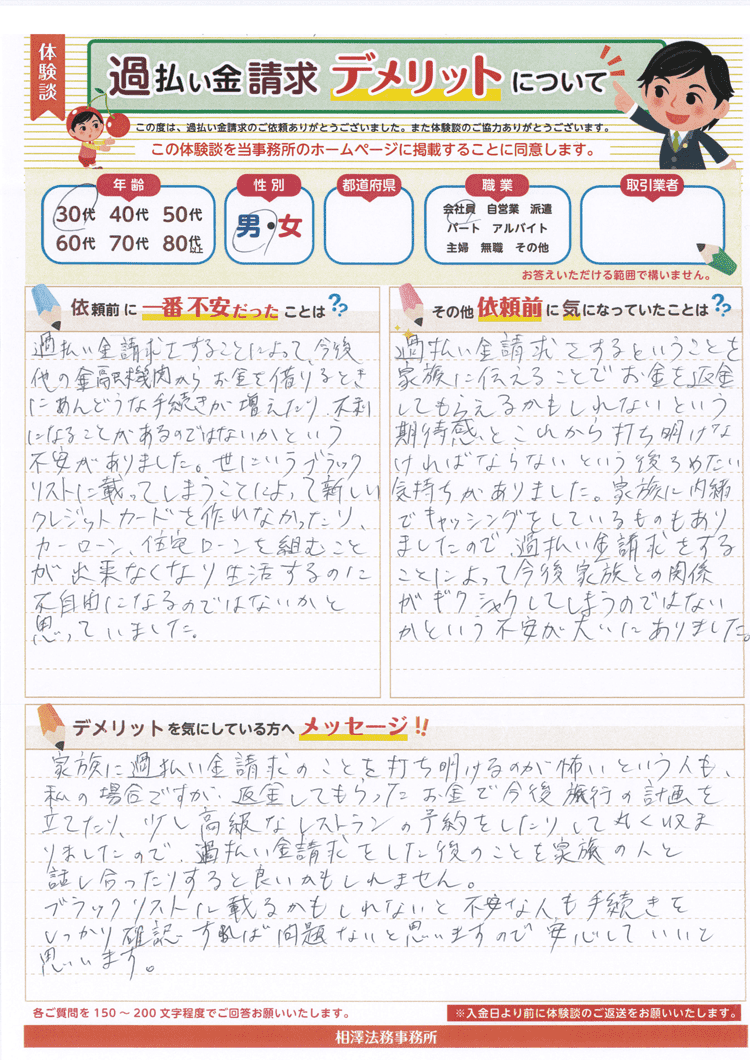 体験談
過払い金請求 デメリットについて
この度は、過払い金請求のご依頼ありがとうございました。また体験談のご協力ありがとうございます。
この体験談を当事務所のホームページに掲載することに同意します。
年齢
30代 40代 50代
60代 70代 80代以上
性別
男・女
都道府県
職業
会社員 自営業 派遣
パート アルバイト
主婦 無職 その他
取引業者
お答えいただける範囲で構いません。
依頼前に一番不安だったことは??
過払い金請求をすることによって、今後
他の金融機関からお金を借りるとき
にめんどうな手続きが増えたり、不利
になることがあるのではないかという
不安がありました。世にいうブラック
リストに載ってしまうことによって新しい
クレジットカードを作れなかったり、
カーローン、住宅ローンを組むこと
が出来なくなり生活するのに
不自由になるのではないかと
思っていました。
その他依頼前に気になっていたことは??
過払い金請求をするということを
家族に伝えることでお金を返金
してもらえるかもしれないという
期待感とこれから打ち明けな
ければならないという後ろめたい
気持ちがありました。家族に内緒
でキャッシングをしているものもあり
ましたので、過払い金請求をする
ことによって今後家族との関係
がギクシャクしてしまうのではない
かという不安が大いにありました。
デメリットを気にしている方へメッセージ!!
家族に過払い金請求のことを打ち明けるのが怖いという人も、
私の場合ですが、返金してもらったお金で今後旅行の計画を
立てたり、少し高級なレストランの予約をしたりして丸く収ま
りましたので、過払い金請求をした後のことを家族の人と
話し合ったりすると良いかもしれません。
ブラックリストに載るかもしれないと不安な人も手続きを
しっかり確認すれば問題ないと思いますので安心していいと
思います。
各ご質問を150〜200文字程度でご回答お願いいたします。
※入金日より前に体験談のご返送をお願いいたします。
相澤法務事務所